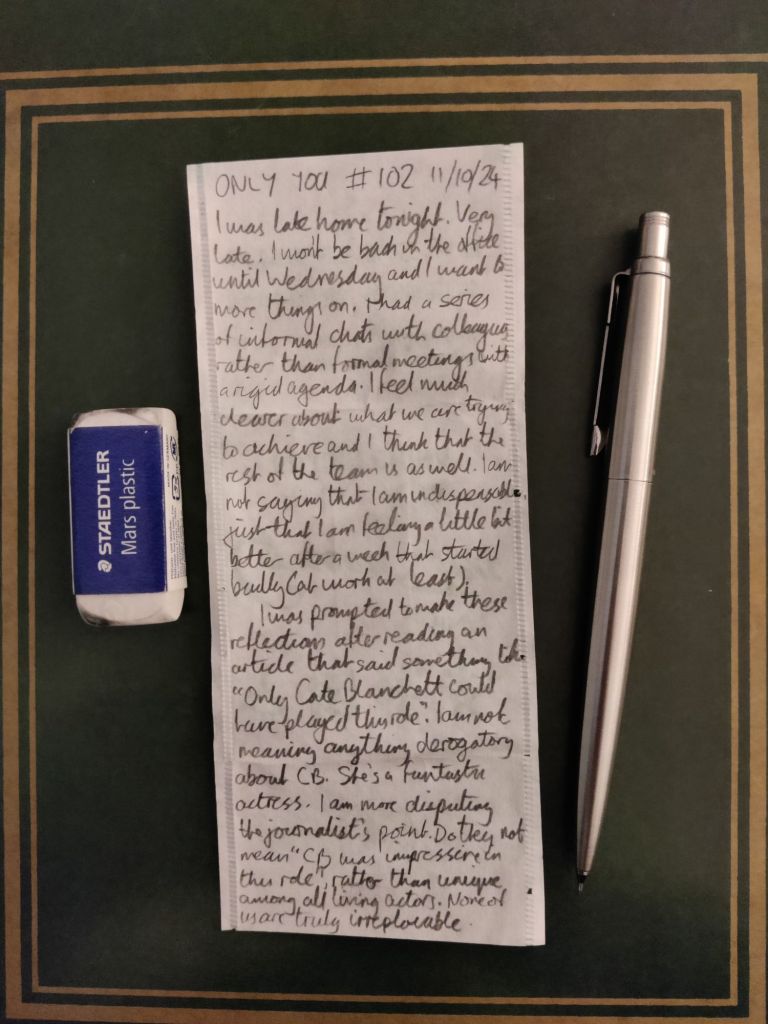 ONLY YOU #102 11/10/24
I was late home tonight. Very
late. I won't be back in the office
until Wednesday and I want to
more things on. I had a series
of informal chats with colleagues
rather than formal meetings with
a rigid agenda. I feel much
clearer about what we are trying
to achieve and I think that the
rest of the team is as well. I am
not saying that I am indispensable,
just that I am feeling a little bit
better after a week that started
badly (at work at least).
I was prompted to make these
reflections after reading an
article that said something like
"Only Cate Blanchett could
have played this role". I am not
meaning anything derogatory
about CB. She's a fantastic
actress. I am more disputing
the journalist's point. Do they not
mean "CB was impressive in
this role", rather than unique
among all living actors. None of
us are truly irreplaceable.
STAEDTLER
Mars plastic